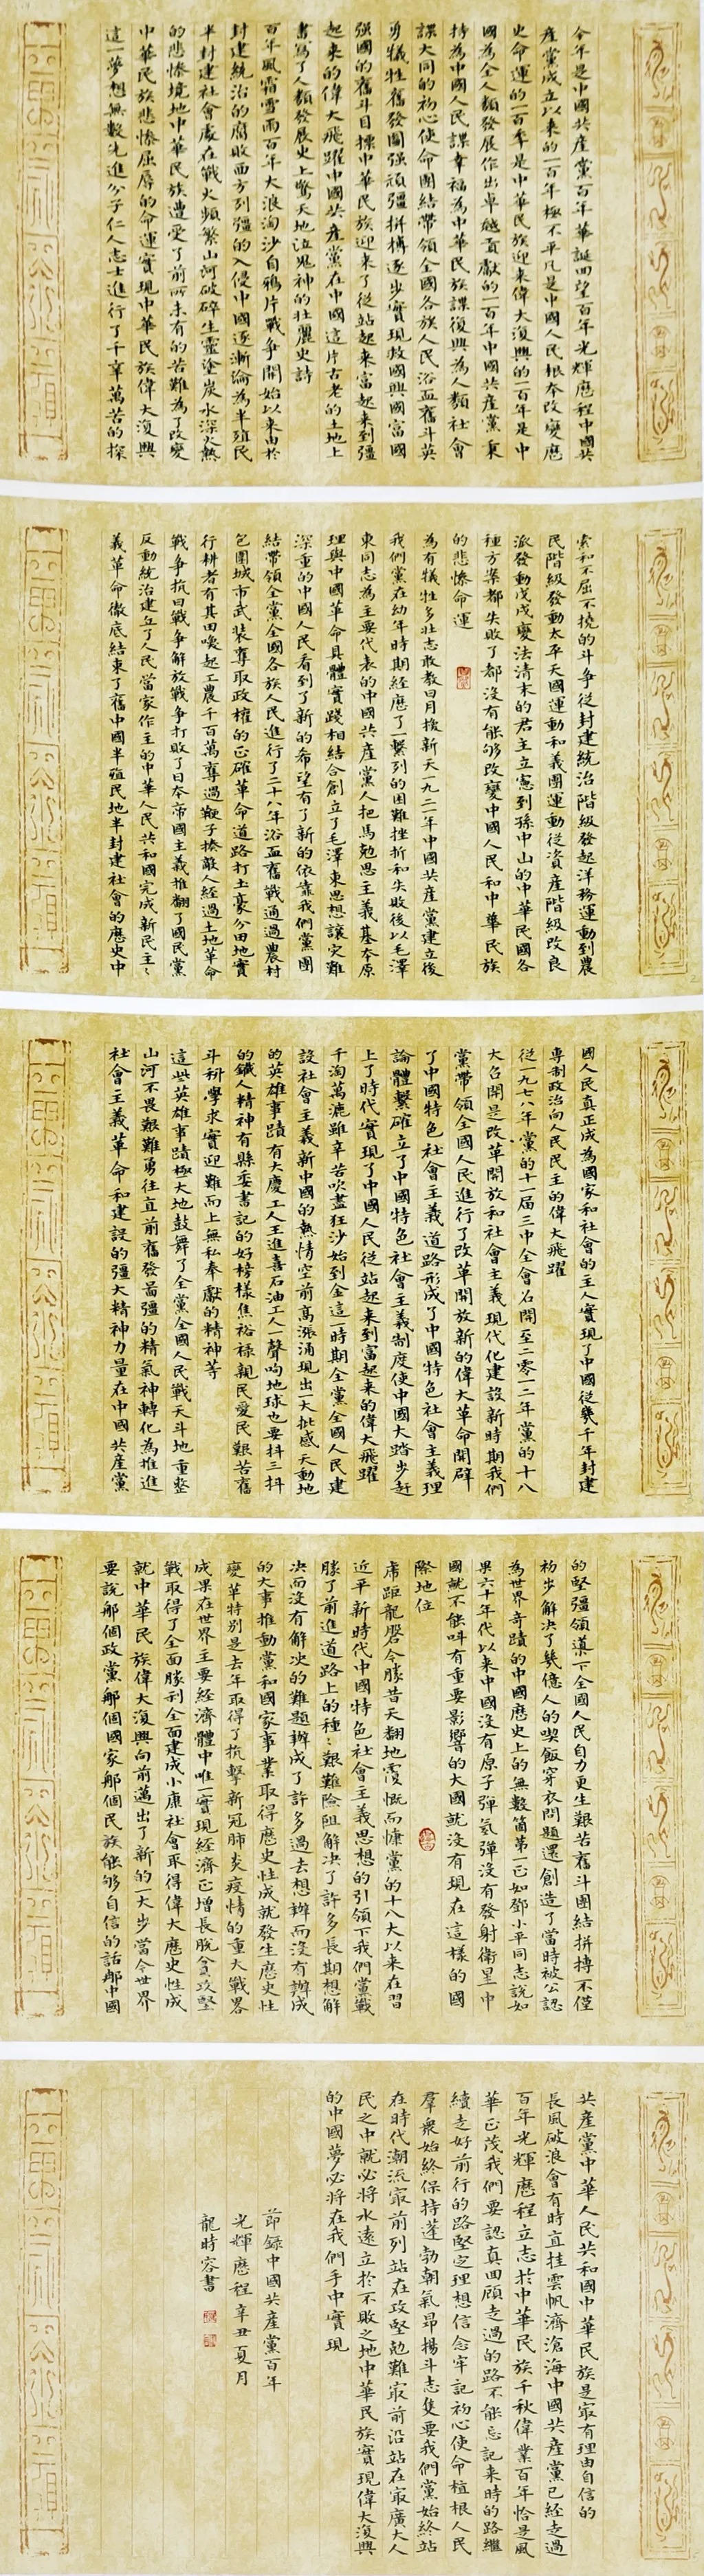 今年是中國共產黨百年華誕回望百年光輝歷程中國共
產黨成立以來的一百年極不平凡是中國人民根本改變歷
史命運的一百年是中華民族迎來偉大復興的一百年是中
國為全人類發展作出卓越貢獻的一百年中國共產黨秉
持為中國人民謀幸福為中華民族謀復興為人類社會
謀大同的初心使命團結帶領全國各族人民浴血奮斗英
勇犧牲奮發圖强頑彊拼搏逐步實現救國興國富國
强國的奮斗目標中華民族迎來了從站起來富起來到彊
起來的偉大飛躍中國共產黨在中國這片古老的土地上
書寫了人類發展史上驚天地泣鬼神的壯麗史詩
百年風霜雪雨百年大浪淘沙自鴉片戰争開始以来由於
封建統治的腐敗西方列彊的入侵中國逐漸淪為半殖民
半封建社會處在戰火頻繁山河破碎生靈塗炭水深火熱
的悲慘境地中華民族遭受了前所未有的苦難為了改變
中華民族悲慘屈辱的命運實現中華民族偉大復興
這一夢想無數先進分子仁人志士進行了千辛萬苦的探
索和不屈不撓的斗争從封建統治階級發起洋務運動到農
民階級發動太平天國運動和義團運動從資產階級改良
派發動戊戌變法清末的君主立憲到孫中山的中華民國各
種方案都失敗了都沒有能够改變中國人民和中華民族
的悲慘命運
為有犧牲多壯志敢教日月換新天一九二一年中國共產黨建立後
我們黨在幼年時期經歷了一繫列的困難挫折和失敗後以毛澤
東同志為主要代表的中國共產黨人把馬勉思主義基本原
理與中國革命具體實踐相結合創立了毛澤東思想讓灾難
深重的中國人民看到了新的希望有了新的依靠我們黨團
結帶領全黨全國各族人民進行了二十八年浴血奮戰通過農村
包圍城市武裝奪取政權的正確革命道路打土豪分田地實
行耕者有其田喚起工農千百萬奪過鞭子揍敵人經過土地革命
戰争抗日戰争解放戰争打敗了日本帝國主義推翻了國民黨
反動統治建立了人民當家作主的中華人民共和國完成新民主ミ
義革命徹底結束了舊中國半殖民地半封建社會的歷史中
國人民真正成為國家和社會的主人實現了中國從幾千年封建
專制政治向人民民主的偉大飛躍
從一九七八年黨的十一届三中全會召開至二零一二年黨的十八
大召開是改革開放和社會主義現代化建設新時期我們
黨帶領全國人民進行了改革開放新的偉大革命開辟
了中國特色社會主義道路形成了中國特色社會主義理
論體繫確立了中國特色社會主義制度使中國大踏步赶
上了時代實現了中國人民從站起來到富起來的偉大飛躍
千淘萬漉雖辛苦吹盡狂沙始到金這一時期全黨全國人民建
設社會主義新中國的熱情空前高漲涌現出大批感天動地
的英雄事蹟有大慶工人王進喜石油工人一聲吼地球也要抖三抖
的鐵人精神有縣委書記的好榜樣焦裕祿親民愛民艱苦奮
斗科學求實迎難而上無私奉獻的精神等
這些英雄事蹟極大地鼓舞了全黨全國人民戰天斗地重整
山河不畏艱難勇往直前奮發啚彊的精氣神轉化為推進
社會主義革命和建設的彊大精神力量在中國共產黨
的堅彊領導下全國人民自力更生艱苦奮斗團結拼搏不僅
初步解决了幾億人的喫飯穿衣問題還創造了當時被公認
為世界奇蹟的中國歷史上的無數箇第一正如鄧小平同志說如
果六十年代以来中國沒有原子彈氫彈沒有發射衛星中
國就不能呌有重要影響的大國就沒有現在這樣的國
際地位
虎距龍磐今勝昔天翻地覆慨而慷黨的十八大以来在習
近平新時代中國特色社會主義思想的引領下我們黨戰
勝了前進道路上的種ミ艱難險阻解决了許多長期想解
决而沒有解决的難題辦成了許多過去想辦而沒有辦成
的大事推動黨和國家事業取得歷史性成就發生歷史性
變革特别是去年取得了抗擊新冠肺炎疫情的重大戰畧
成果在世界主要經濟體中唯一實現經濟正增長脫貧攻堅
戰取得了全面勝利全面建成小康社會取得偉大歷史性成
就中華民族偉大復興向前邁出了新的一大步當今世界
要說那個政黨那個國家那個民族能够自信的話那中國
共產黨中華人民共和國中華民族是最有理由自信的
長風破浪會有時直挂雲帆濟滄海中國共產黨已經走過
百年光輝歷程立志於中華民族千秋偉業百年恰是風
華正茂我們要認真回顧走過的路不能忘記来時的路繼
續走好前行的路堅定理想信念牢記初心使命植根人民
羣衆始終保持蓬勃朝氣昂揚斗志隻要我們黨始終站
在時代潮流最前列站在攻堅勉難最前沿站在最廣大人
民之中就必將永遠立於不敗之地中華民族實現偉大復興
的中國夢必將在我們手中實現
節録中國共產黨百年
光輝歷程辛丑夏月
龍時容書